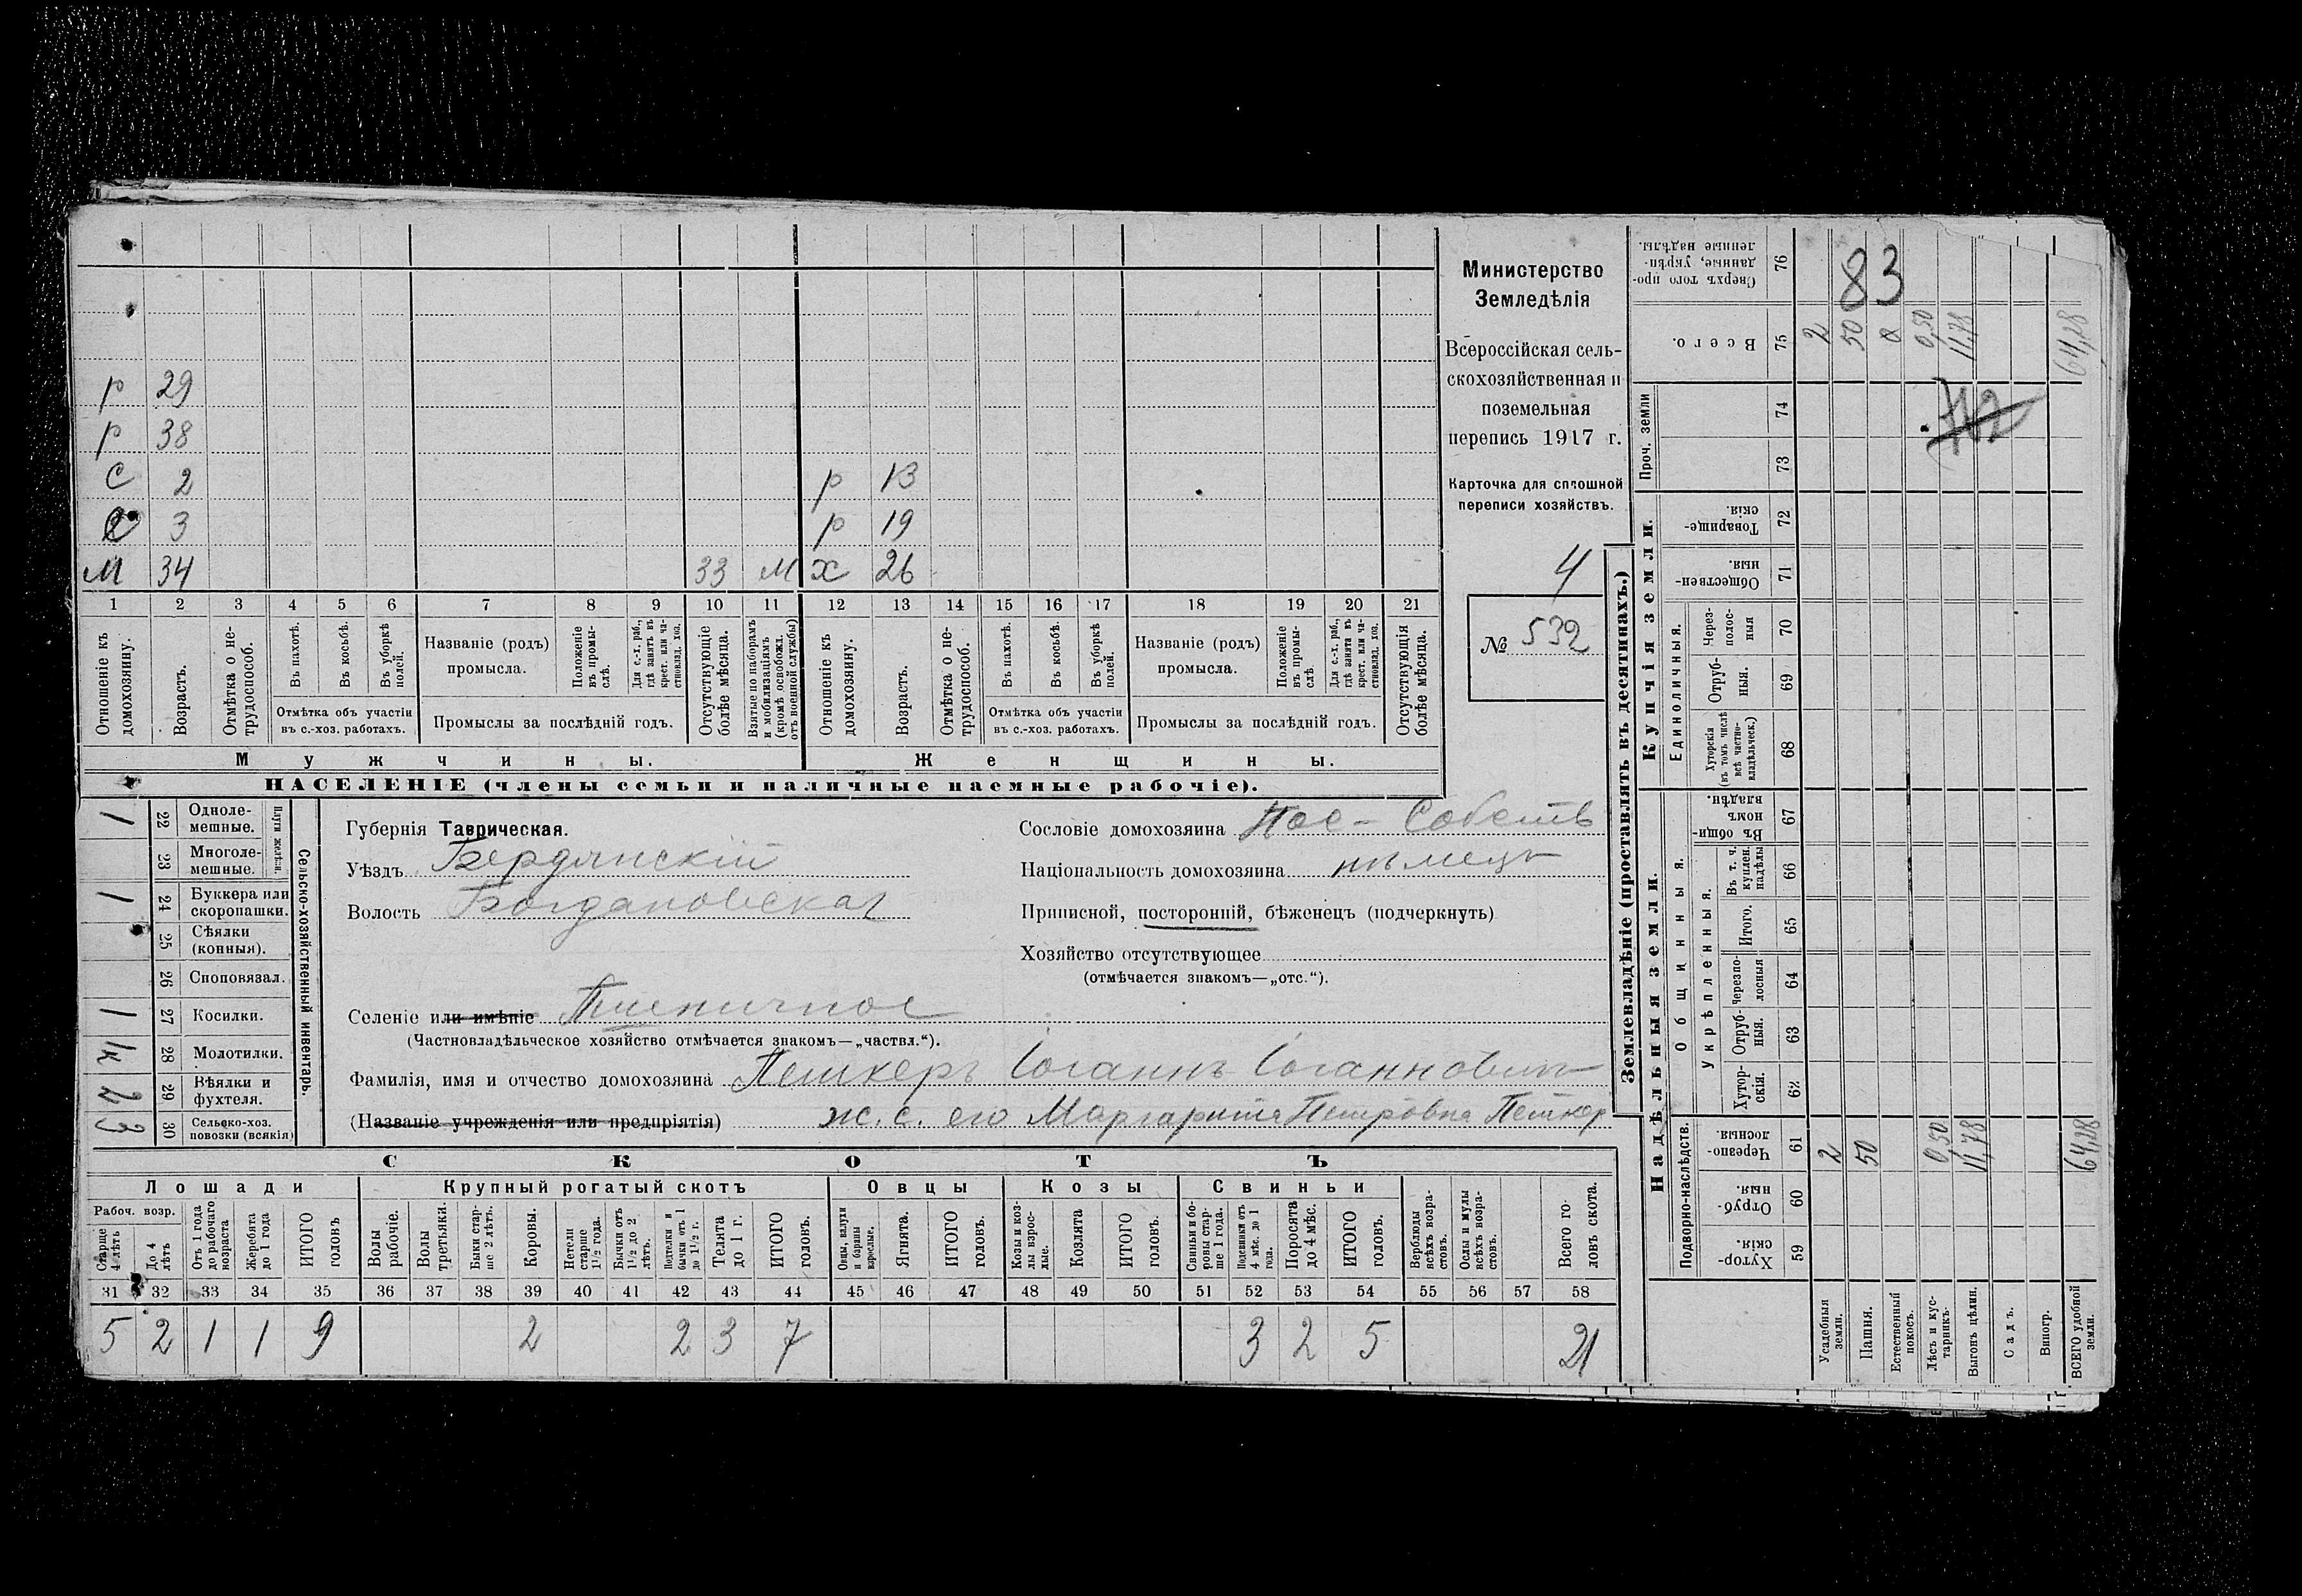 р 29
р 38
С 2 р 13
3 р 19
М 34 33 М Х 26
1 2 3 4 5 6 7 8 9 10 11 12 13 14 15 16 17 18 19 20 21
Отношеніе къ домохозяину.
Возрастъ.
Отмѣтка о нетрудоспособ.
Въ пахотѣ.
Въ косьбѣ.
Въ уборкѣ полей.
Отмѣтка объ участіи
въ с.-хоз. работахъ.
Названіе (родъ)
промысла.
Положеніе въ промыслѣ.
Для с.-х. раб., гдѣ занятъ въ крест. или частновлад. хоз.
Промыслы за послѣдній годъ.
Отсутствующіе болѣе мѣсяца.
Взятые по наборамъ и мобилизаціямъ (кромѣ освобожд. отъ военной службы)
Отношеніе къ домохозяину.
Возрастъ.
Отмѣтка о нетрудоспособ.
Въ пахотѣ.
Въ косьбѣ.
Въ уборкѣ полей.
Отмѣтка объ участіи
въ с.-хоз. работахъ.
Названіе (родъ)
промысла.
Положеніе въ промыслѣ
Для с.-х. раб., гдѣ занята въ крест. или частновлад. хоз.
Промыслы за послѣдній годъ.
Отсутствующія болѣе мѣсяца.
Мужчины. Женщины.
НАСЕЛЕНІЕ (члены семьи и наличные наемные рабочіе).
Министерство
Земледѣлія
Всероссійская сель-
скохозяйственная и
поземельная
перепись 1917 г.
Карточка для сплошной
переписи хозяйствъ.
4
№ 532
Сельско-хозяйственный инвентарь.
Плуги желѣзн.
1 22 Одноле-
мешные.
23 Многоле-
мешные.
1 24 Буккера или
скоропашки.
25 Сѣялки
(конныя).
26 Сноповязал.
1 27 Косилки.
1к 28 Молотилки.
2 29 Вѣялки и
фухтеля.
3 30 Сельско-хоз.
повозки (всякія)
Губернія Таврическая.
Уѣздъ Бердянскій
Волость Богдановская
Селеніе или имѣніе Пшеничное
(Частновладѣльческое хозяйство отмѣчается знакомъ—„частвл.“).
Фамилія, имя и отчество домохозяина Петкеръ Іоганнъ Іоганновичъ
(Названіе учрежденія или предпріятія) ж. с. его Маргарита Петровна Петкер
Сословіе домохозяина Пос- Собств
Національность домохозяина нѣмецъ
Приписной, посторонній, бѣженецъ (подчеркнуть)
Хозяйство отсутствующее
(отмѣчается знакомъ—„отс.“).
СКОТЪ
Лошади Крупный рогатый скотъ Овцы Козы Свиньи
Рабоч. возр.
Старше 4 лѣтъ
До 4 лѣтъ
Отъ 1 года до рабочаго возраста
Жеребята до 1 года
ИТОГО головъ
Волы рабочіе.
Волы третьяки.
Быки старше 2 лѣтъ.
Коровы.
Нетели старше 1 1/2 года.
Бычки отъ 1 1/2 до 2 лѣтъ.
Подтелки и бычки отъ 1 до 1 1/2 г.
Телята до 1 г.
ИТОГО головъ.
Овцы, валухи и бараны взрослые.
Ягнята.
ИТОГО головъ.
Козы и козлы взрослые.
Козлята
ИТОГО головъ.
Свиньи и боровы старше 1 года.
Подсвинки отъ 4 мѣс. до 1 года.
Поросята до 4 мѣс.
ИТОГО головъ.
Верблюды всѣхъ возрастовъ.
Ослы и мулы всѣхъ возрастовъ.
Всего головъ скота.
31 32 33 34 35 36 37 38 39 40 41 42 43 44 45 46 47 48 49 50 51 52 53 54 55 56 57 58
5 2 1 1 9 2 2 3 7 3 2 5 21
Землевладѣніе (проставлять въ десятинахъ.)
Надѣльныя земли. Купчія земли. Проч. земли
Подворно-наслѣдств.
Общинныя.
Укрѣпленныя.
Единоличныя.
Хуторскія. 59
Отрубныя. 60
Черезполосныя. 61
Хуторскія. 62
Отрубныя. 63
Черезполосныя 64
Итого. 65
Въ т. ч. куплен. надѣлы 66
Въ общинномъ владѣн. 67
Хуторскія (въ томъ числѣ всѣ частновладѣльческ.) 68
Отрубныя. 69
Черезполосныя 70
Общественныя. 71
Товарищескія. 72
73
74
Всего. 75
Сверхъ того проданные, укрѣпленные надѣлы. 76
Усадебныя земли. 2 2
Пашня. 50 50
Естественный покосъ.
Лѣсъ и кустарникъ. 0,50 0,50
Выгонъ цѣлин. 11,78 11,78
Садъ.
Виногр.
ВСЕГО удобной земли. 64,28 64,28
83